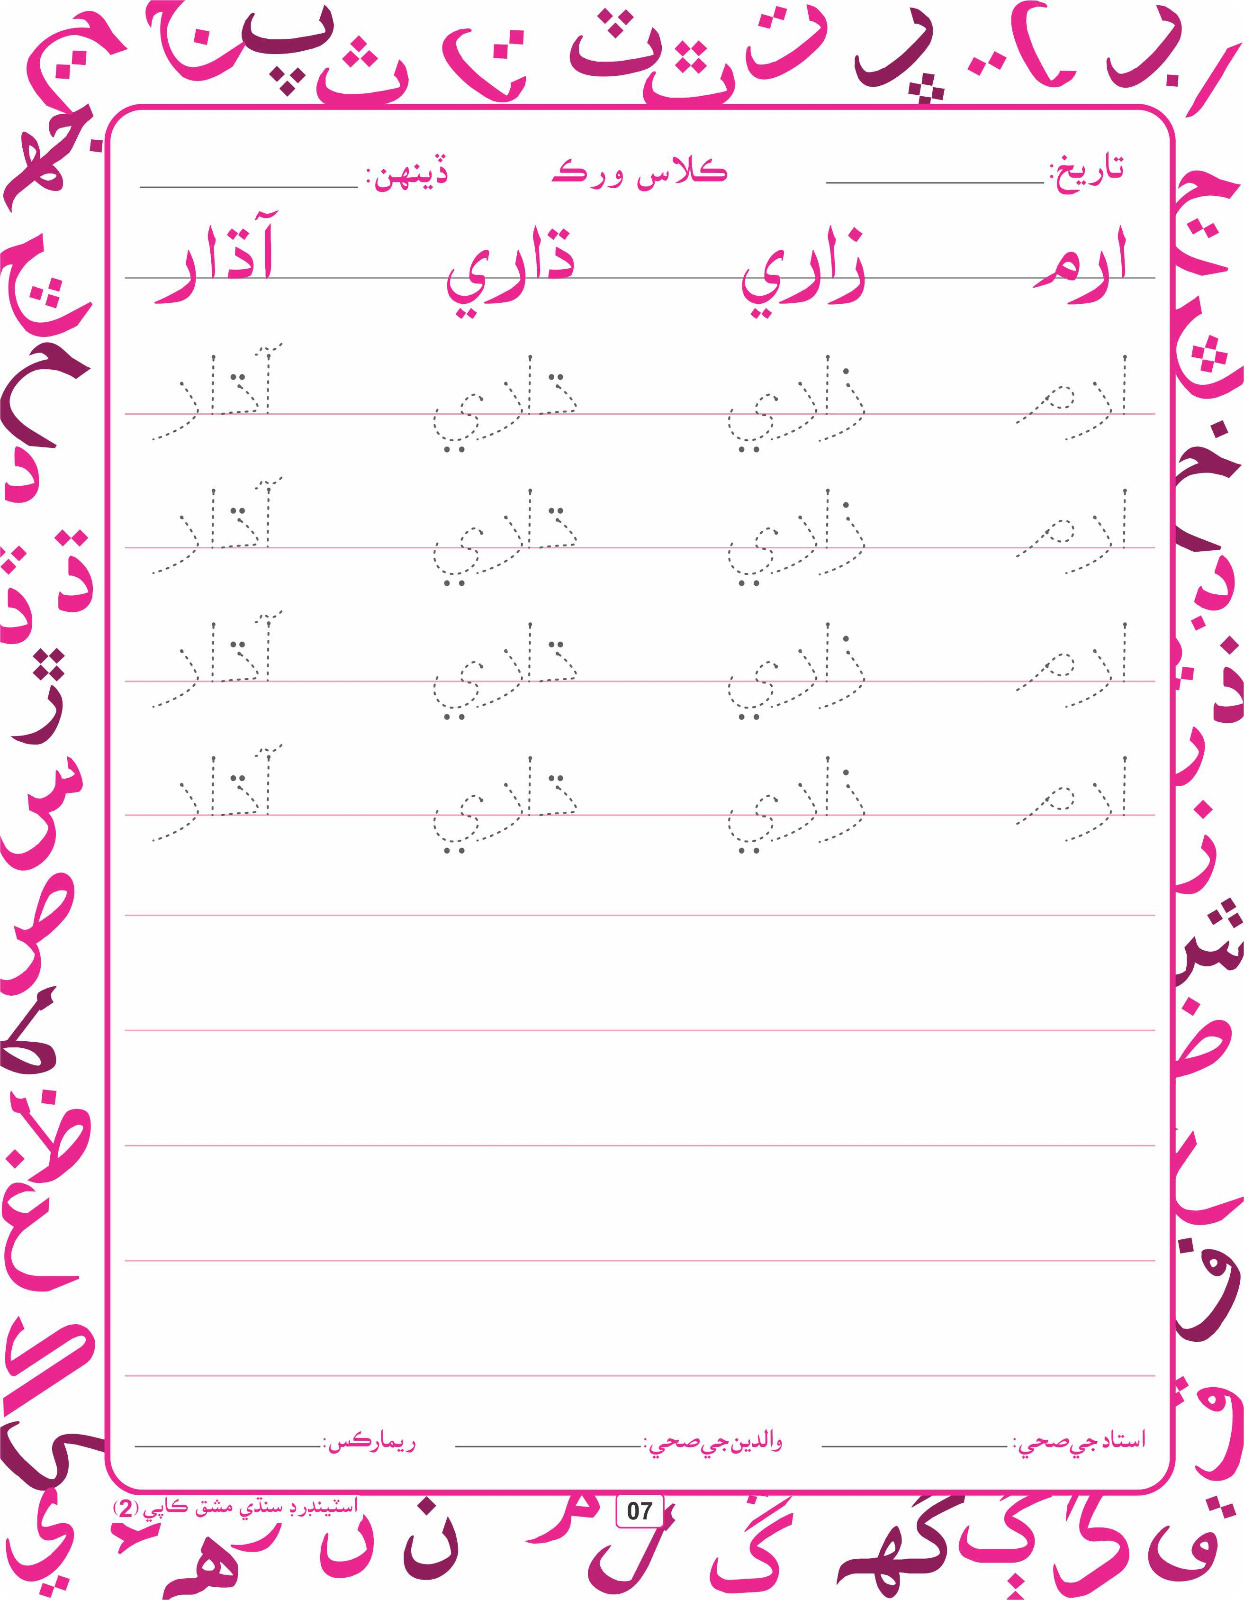 تاريخ: ڪلاس ورڪ ڏينهن:
ارم زاري ڌاري آڌار
ارم زاري ڌاري آڌار
ارم زاري ڌاري آڌار
ارم زاري ڌاري آڌار
ارم زاري ڌاري آڌار
استاد جي صحي: والدين جي صحي: ريمارڪس:
07 اسٽينڊرڊ سنڌي مشق ڪاپي (2)